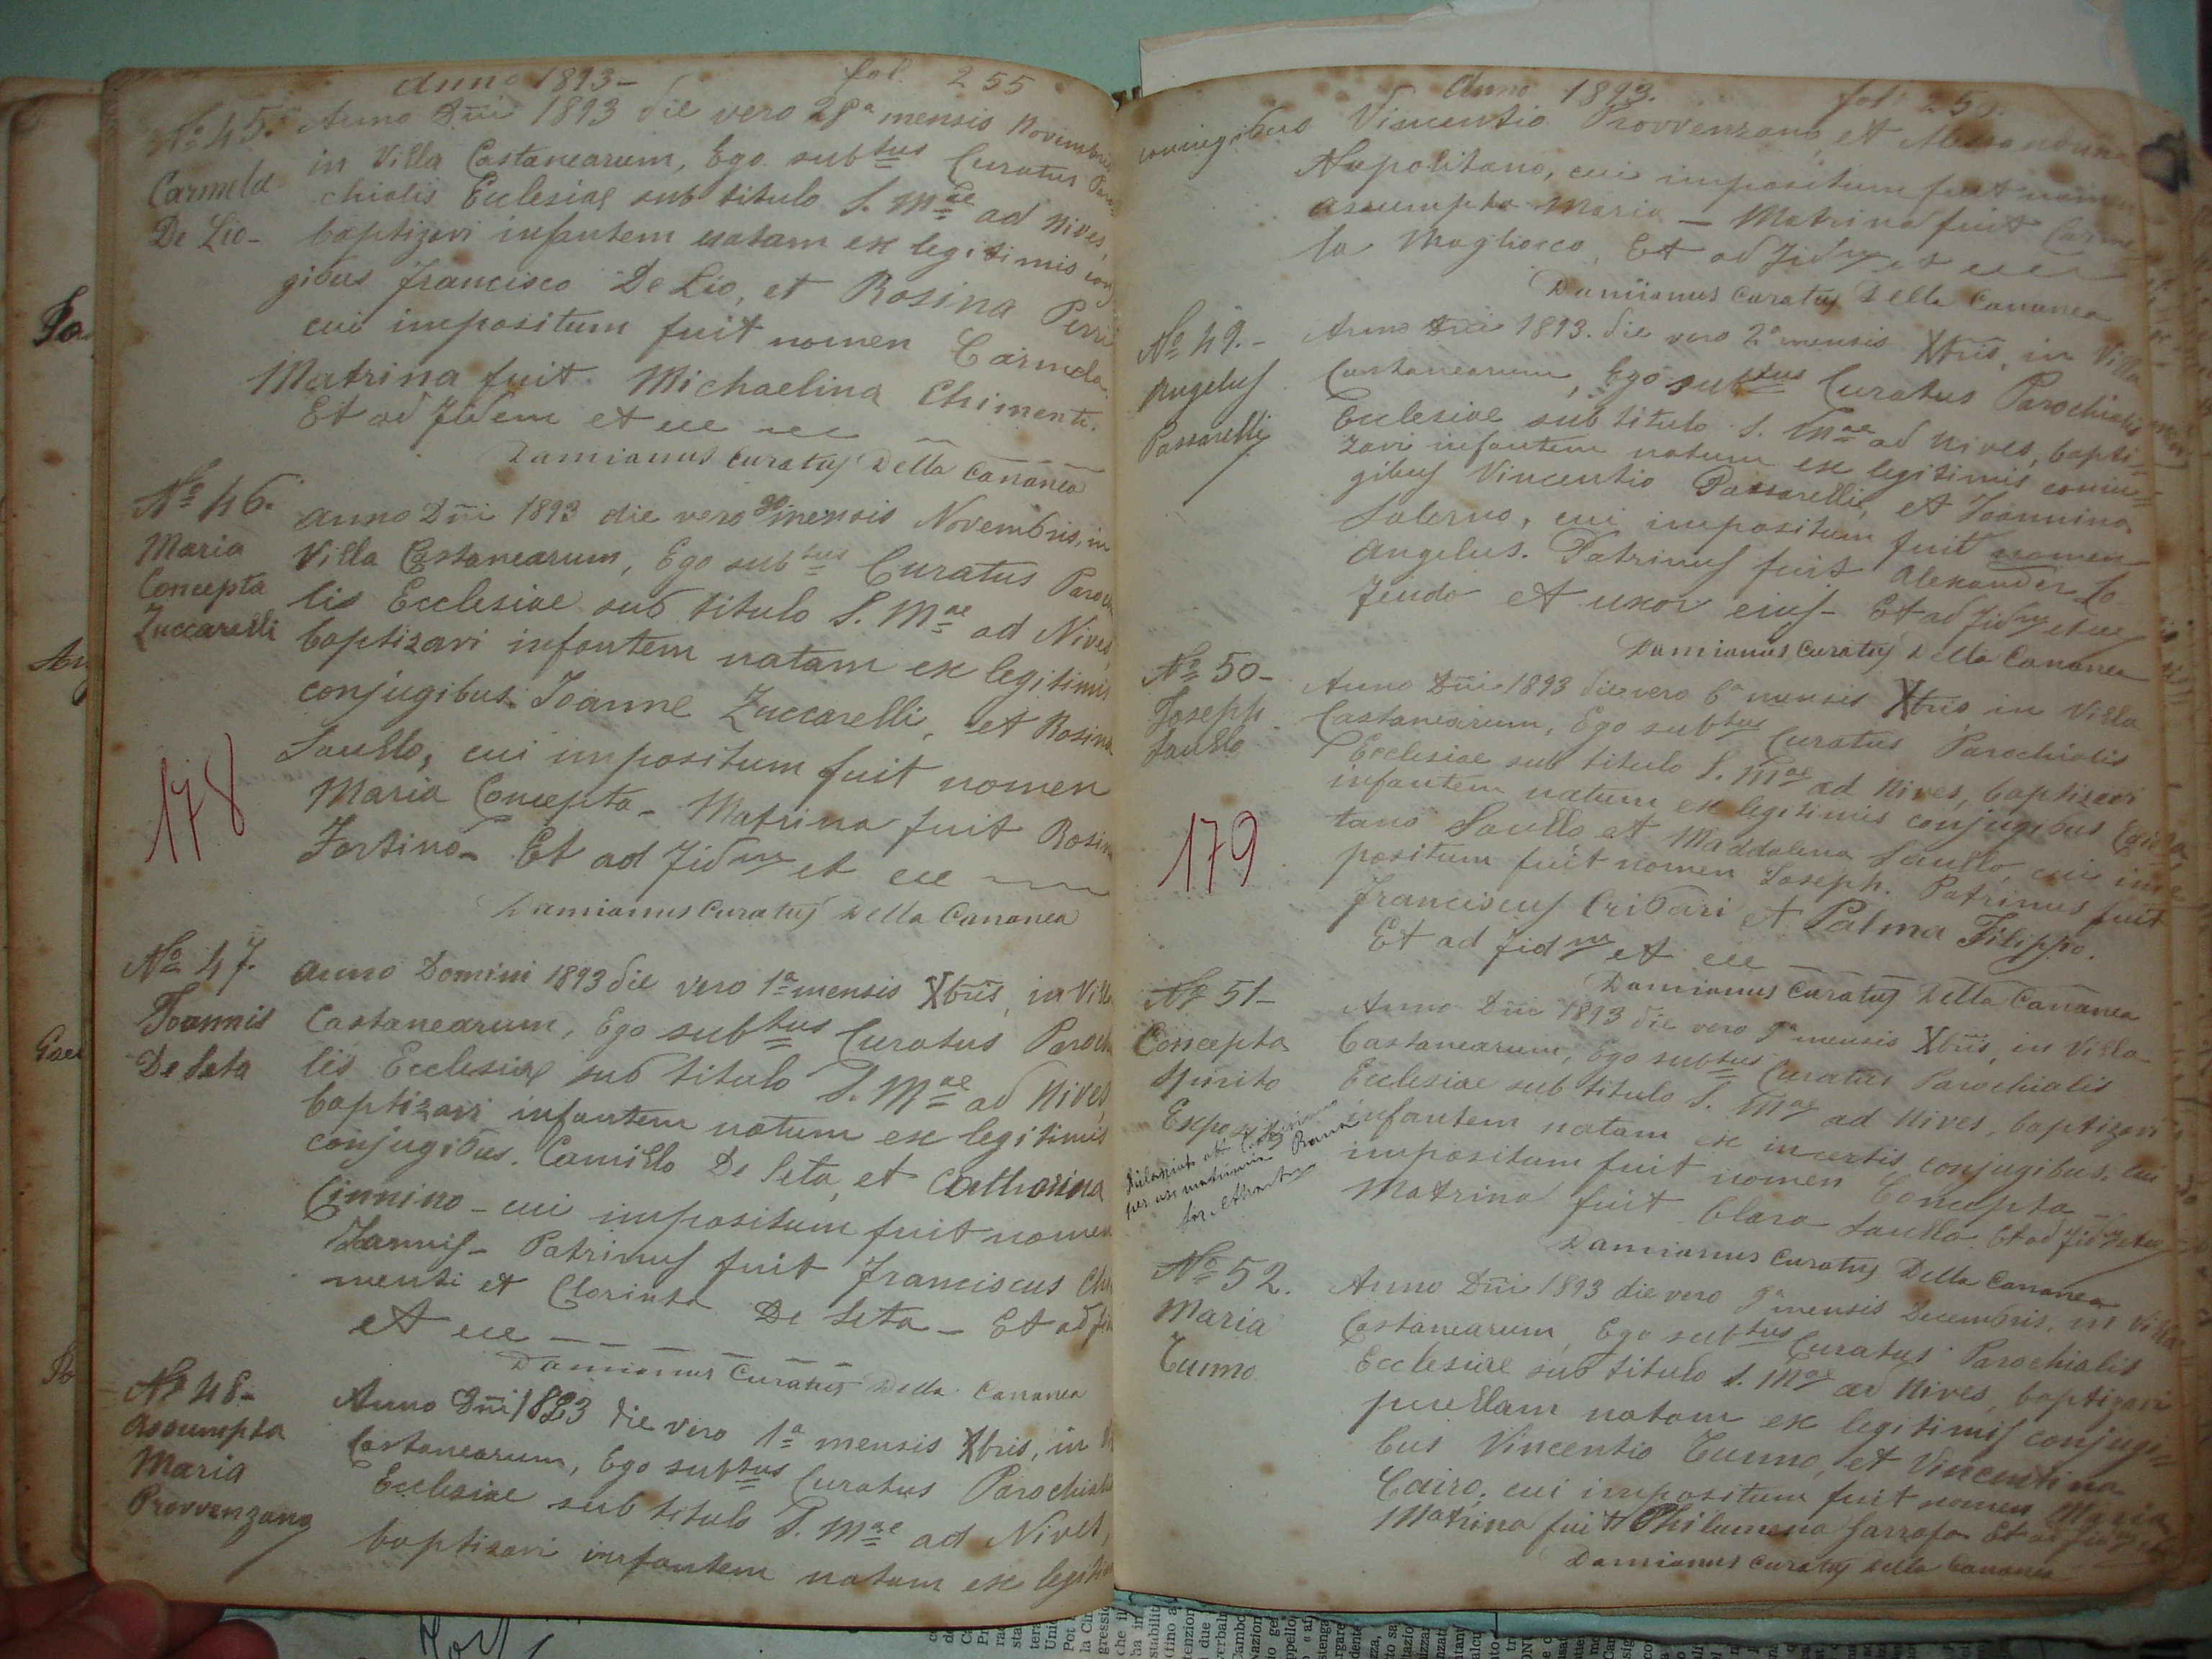 Anno 1893- fol. 255
Nº 45.
Carmela
De Lio-
Anno Dñi 1893 die vero 28ª mensis Novembris
in Villa Castanearum, Ego subtus Curatus Paro
chialis Ecclesiae sub titulo S. Mae ad Nives,
baptizavi infantem natam ex legitimis conj
gibus Francisco De Lio, et Rosina Perri
cui impositum fuit nomen Carmela.
Matrina fuit Michaelina Chimenti.
Et ad fidem et
Damianus Curatus Della Cananea
Nº 46.
Maria
Concepta
Zuccarelli
Anno Dñi 1893 die vero mensis Novembris, in
Villa Castanearum, Ego subtus Curatus Paroch
lis Ecclesiae sub titulo S. Mae ad Nives,
baptizavi infantem natam ex legitimis
conjugibus Joanne Zuccarelli, et Rosina
Saullo, cui impositum fuit nomen
Maria Concepta- Matrina fuit Rosin
Fortino- Et ad fidm et
Damianus Curatus Della Cananea
178
Nº 47.
Joannis
De Seta
Anno Domini 1893 die vero 1ª mensis Xbris, in Vill
Castanearum, Ego subtus Curatus Paroch
lis Ecclesiae sub titulo S. Mae ad Nives,
baptizavi infantem natum ex legitimis
conjugibus Camillo De Seta, et Catharina
Cinnino- cui impositum fuit nomen
Joannis- Patrinus fuit Franciscus Chi
menti et Clorinta De Seta- Et ad fid
et
Damianus Curatus Della Cananea
Nº 48-
Assumpta
Maria
Provvenzano
Anno Dñi 1893 die vero 1ª mensis Xbris, in
Castanearum, Ego subtus Curatus Parochialis
Ecclesiae sub titulo S. Mae ad Nives,
baptizavi infantem natam ex legiti
Anno 1893. fol.
coniugibus Vincentio Provvenzano, et
Napolitano, cui impositum fuit nomen
Assumpta Maria - Matrina fuit Carme
la Magliocco, Et ad fidm et
Damianus Curatus Della Cananea
Nº 49.-
Angelus
Passarelli
Anno Dñi 1893. die vero 2ª mensis Xbris, in Villa
Castanearum, Ego subtus Curatus Parochialis
Ecclesiae sub titulo S. Mae ad Nives, bapti=
zavi infantem natum ex legitimis coniu=
gibus Vincentio Passarelli, et Joannina
Salerno, cui impositum fuit nomen
Angelus. Patrinus fuit Alexander Lo
Feudo et uxor eius- Et ad fidm et
Damianus Curatus Della Cananea
Nº 50-
Joseph
Saullo
Anno Dñi 1893 die vero 6ª mensis Xbris, in Villa
Castanearum, Ego subtus Curatus Parochialis
Ecclesiae sub titulo S. Mae ad Nives, baptizavi
infantem natum ex legitimis conjugibus
tano Saullo et Maddalena Saullo, cui im
positum fuit nomen Joseph. Patrinus fuit
Franciscus Cribari et Palma Filippo.
Et ad fidm et
Damianus Curatus Della Cananea
179
Nº 51-
Concepta
Spirito
Anno Dñi 1893 die vero 9ª mensis Xbris, in Villa
Castanearum, Ego subtus Curatus Parochialis
Ecclesiae sub titulo S. Mae ad Nives, baptizavi
infantem natam ex incertis conjugibus, cui
impositum fuit nomen Concepta-
Matrina fuit Clara Saullo. Et ad fidm
Damianus Curatus Della Cananea
Nº 52.
Maria
Tunno
Anno Dñi 1893 die vero 9ª mensis Decembris, in Villa
Castanearum, Ego subtus Curatus Parochialis
Ecclesiae sub titulo S. Mae ad Nives, baptizavi
puellam natam ex legitimis conjugi=
bus Vincentio Tunno, et Vincentina
Cairo, cui impositum fuit nomen Maria
Matrina fuit Philumena Garrafa Et ad
Damianus Curatus Della Cananea